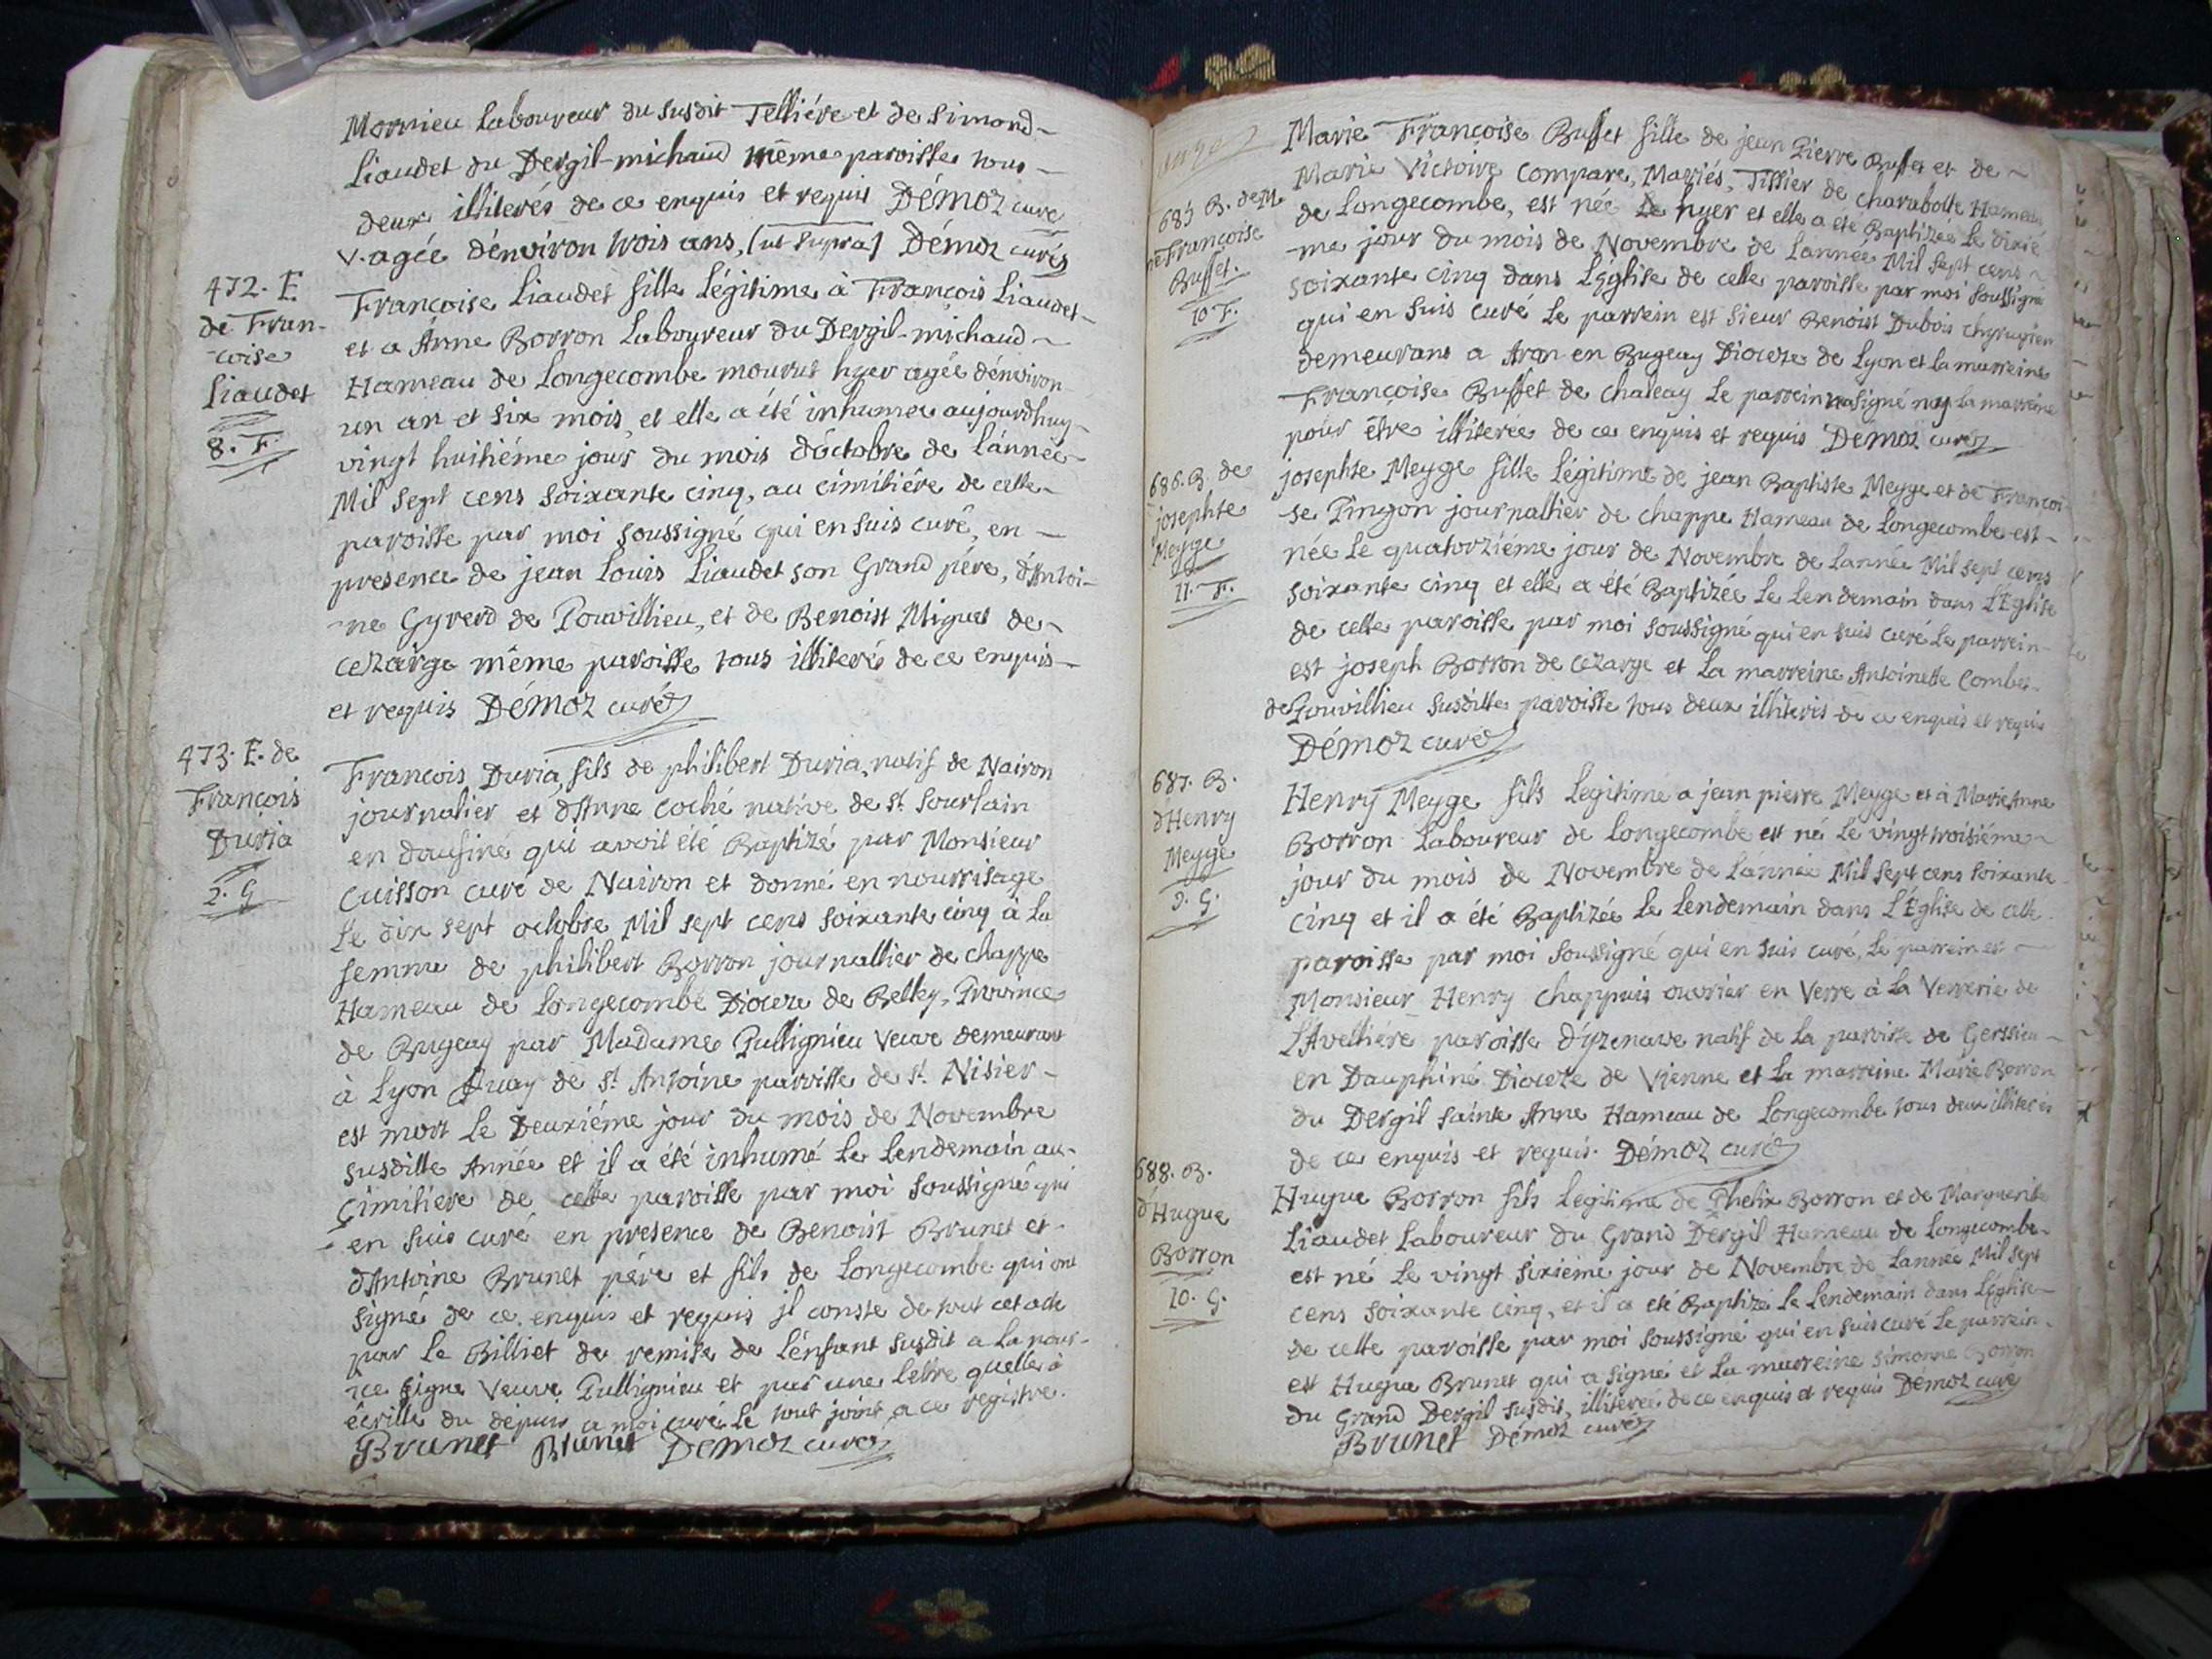 Mornieu Laboureur du susdit Telliére et de Simond
Liaudet du Dergil-michaud même paroisse tous
deux illiterés de ce enquis et requis Démoz curé
v. agée d'environ trois ans, (ut supra) Démoz curé
472. E.
de Fran-
-çoise
Liaudet
8. F.
Françoise Liaudet fille Légitime à François Liaudet
et a Anne Borron Laboureur du Dergil-michaud
Hameau de Longecombe mourut hyer agée d'environ
un an et six mois, et elle a été inhumée aujourdhuy
vingt huitiéme jour du mois d'octobre de L'année
Mil sept cens soixante cinq, au cimitiére de cette
paroisse par moi soussigné qui en suis curé, en
presence de jean Louis Liaudet son Grand pére, d'Antoi-
-ne Gyrerd de Pouvillieu, et de Benoist Miguet de
cezarge même paroisse tous illiterés de ce enquis
et requis Démoz curé
473. E. de
François
Duria
2. G
François Duria, fils de philibert Duria, natif de Nairon
journalier et d'Anne Coché native de st. Sourlain
en daufiné qui avoit été Baptizé par Monsieur
Cuisson curé de Nairon et donné en nourrisage
Le dix sept octobre Mil sept cens soixante cinq à La
femme de philibert Borron journallier de chappe
Hameau de Longecombe Dioceze de Belley, Province
de Bugeay par Madame Pullignieu Veuve demeurant
à Lyon Quay de st. Antoine paroisse de st. Nisier
est mort Le Deuxiéme jour du mois de Novembre
susditte Année et il a été inhumé Le Lendemain au
çimitiere de cette paroisse par moi soussigné qui
en suis curé en presence de Benoist Brunet et
d'Antoine Brunet pére et fils de Longecombe qui ont
signé de ce enquis et requis jl conste de tout cet acte
par Le Billiet de remise de L'enfant susdit a La nour-
-rice signé Veuve Pullignieu et par une Lettre quelle à
écritte du depuis a moi curé Le tout joint a ce registre.
Brunet Brunet Démoz curé
685 B. de M.
Françoise
Buffet.
10 F.
Marie Françoise Buffet fille de jean Pierre Buffet et de
Marie Victoire Compare, Mariés, Tissier de charabotte Hameau
de Longecombe, est née Le hyer et elle a été Baptizée Le dixié
me jour du mois de Novembre de L'année Mil sept cens
soixante cinq dans L'Eglise de cette paroisse par moi soussigné
qui en suis curé Le parrein est Sieur Benoist Dubois chyrugien
demeurans a Aran en Bugeay Dioceze de Lyon et la marreine
Françoise Buffet de chaleay Le parrein signé La marreine
pour être illiterée de ce enquis et requis Démoz curé
686. B. de
josephte
Meyge
11. F.
josephte Meyge fille Légitime de jean Baptiste Meyge et de Françoi
-se Pingon journallier de chappe Hameau de Longecombe est
née Le quatorziéme jour de Novembre de Lannée Mil sept cens
soixante cinq et elle a été Baptizée Le Lendemain dans L'Eglise
de cette paroisse par moi soussigné qui en suis curé Le parrein
est joseph Borron de cezarge et La marreine Antoinette Combet
de Pouvillieu susditte paroisse tous deux illiterés de ce enquis et requis
Démoz curé
687. B.
d'Henry
Meyge
9. G.
Henry Meyge fils Legitime a jean pierre Meyge et à Marie Anne
Borron Laboureur de Longecombe est né Le vingt troisiéme
jour du mois de Novembre de L'année Mil sept cens soixante
cinq et il a été Baptizée Le Lendemain dans L'Eglise de cette
paroisse par moi soussigné qui en suis curé, Le parrein est
Monsieur Henry Chappuis ouvrier en Verre à La Verrerie de
L'Avelliére paroisse d'yzenave natif de La paroisse de Gerssieu
en Dauphiné Dioceze de Vienne et La marreine Marie Borron
du Dergil Sainte Anne Hameau de Longecombe tous deux illiterés
de ce enquis et requis. Démoz curé
688. B.
d'Hugue
Borron
10. G.
Hugue Borron fils Legitime de Phelix Borron et de Marguerite
Liaudet Laboureur du Grand Dergil Hameau de Longecombe
est né Le vingt sixieme jour de Novembre de Lannée Mil sept
cens soixante cinq, et il a été Baptizé Le Lendemain dans L'Eglise
de cette paroisse par moi soussigné qui en suis curé Le parrein
est Hugue Brunet qui a signé et La marreine Simonne Borron
du Grand Dergil susdit, illiterée de ce enquis et requis Démoz curé
Brunet Démoz curé